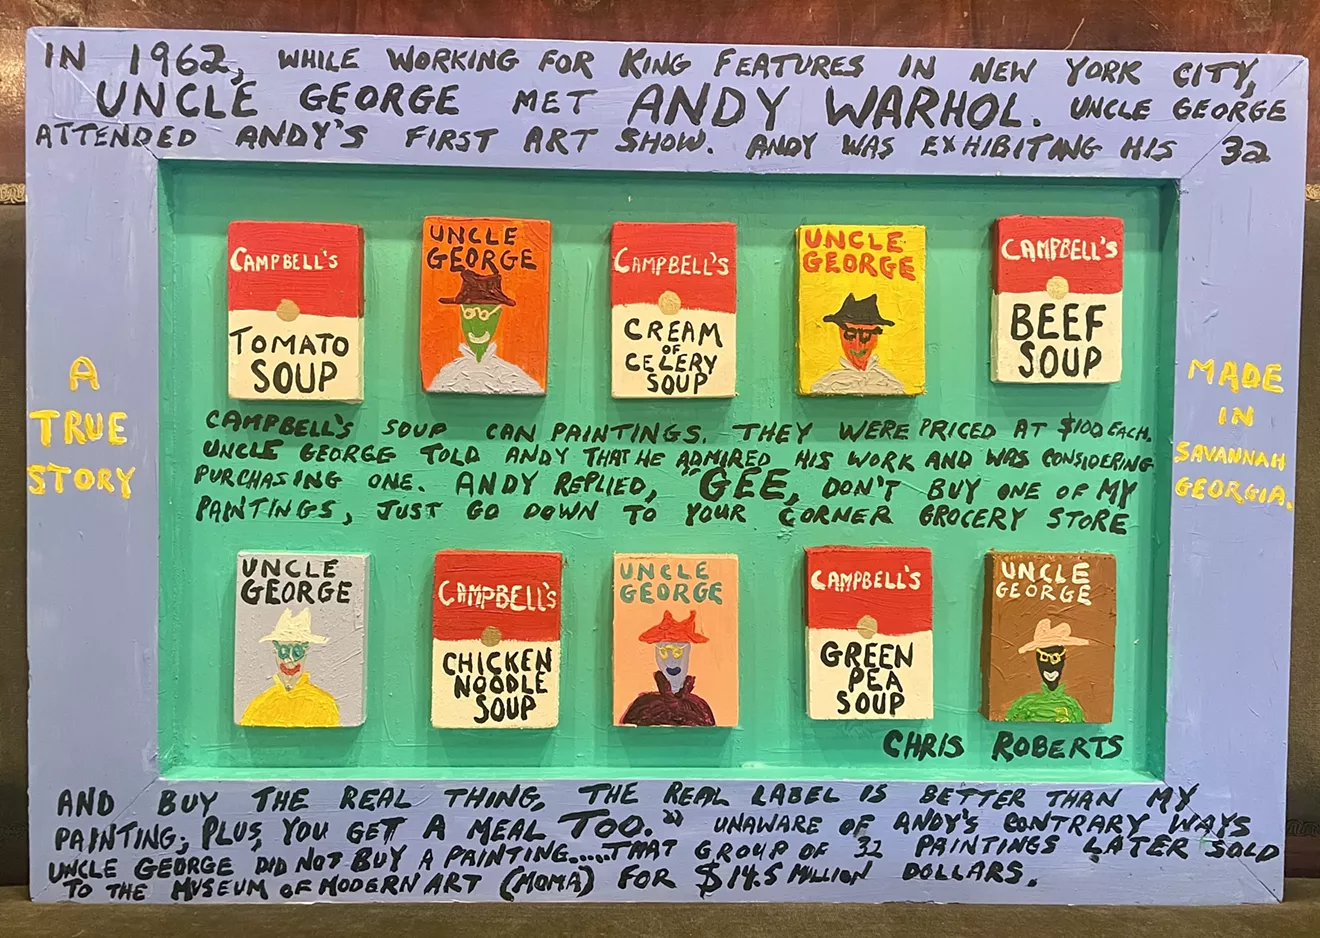 IN 1962, WHILE WORKING FOR KING FEATURES IN NEW YORK CITY,
UNCLE GEORGE MET ANDY WARHOL. UNCLE GEORGE
ATTENDED ANDY'S FIRST ART SHOW. ANDY WAS EXHIBITING HIS 32
CAMPBELL'S
TOMATO
SOUP
UNCLE
GEORGE
CAMPBELL'S
CREAM
OF
CELERY
SOUP
UNCLE
GEORGE
CAMPBELL'S
BEEF
SOUP
A
TRUE
STORY
MADE
IN
SAVANNAH
GEORGIA.
CAMPBELL'S SOUP CAN PAINTINGS. THEY WERE PRICED AT $100 EACH.
UNCLE GEORGE TOLD ANDY THAT HE ADMIRED HIS WORK AND WAS CONSIDERING
PURCHASING ONE. ANDY REPLIED, "GEE, DON'T BUY ONE OF MY
PAINTINGS, JUST GO DOWN TO YOUR CORNER GROCERY STORE
UNCLE
GEORGE
CAMPBELL'S
CHICKEN
NOODLE
SOUP
UNCLE
GEORGE
CAMPBELL'S
GREEN
PEA
SOUP
UNCLE
GEORGE
CHRIS ROBERTS
AND BUY THE REAL THING, THE REAL LABEL IS BETTER THAN MY
PAINTING; PLUS, YOU GET A MEAL TOO." UNAWARE OF ANDY'S CONTRARY WAYS
UNCLE GEORGE DID NOT BUY A PAINTING.....THAT GROUP OF 32 PAINTINGS LATER SOLD
TO THE MUSEUM OF MODERN ART (MOMA) FOR $14.5 MILLION DOLLARS.